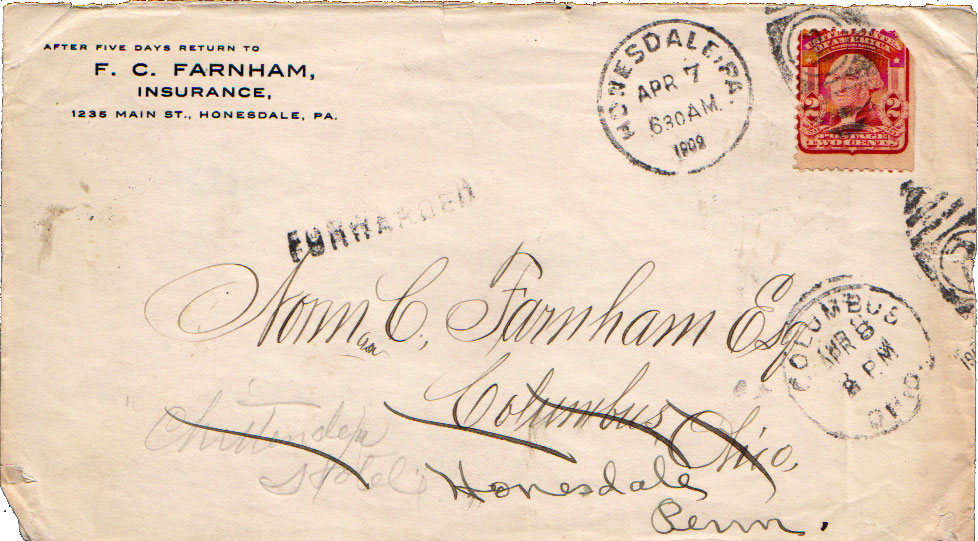 AFTER FIVE DAYS RETURN TO
F. C. FARNHAM,
INSURANCE,
1235 MAIN ST., HONESDALE, PA.
HONESDALE, PA.
APR 7
630 AM.
1909
UNITED STATES
OF AMERICA
2 2
POSTAGE
TWO CENTS
FORWARDED
Norman C. Farnham Esq
Columbus, Ohio,
COLUMBUS
APR 8
8 PM
OHIO
Chittenden
Hotel
Honesdale
Penn.